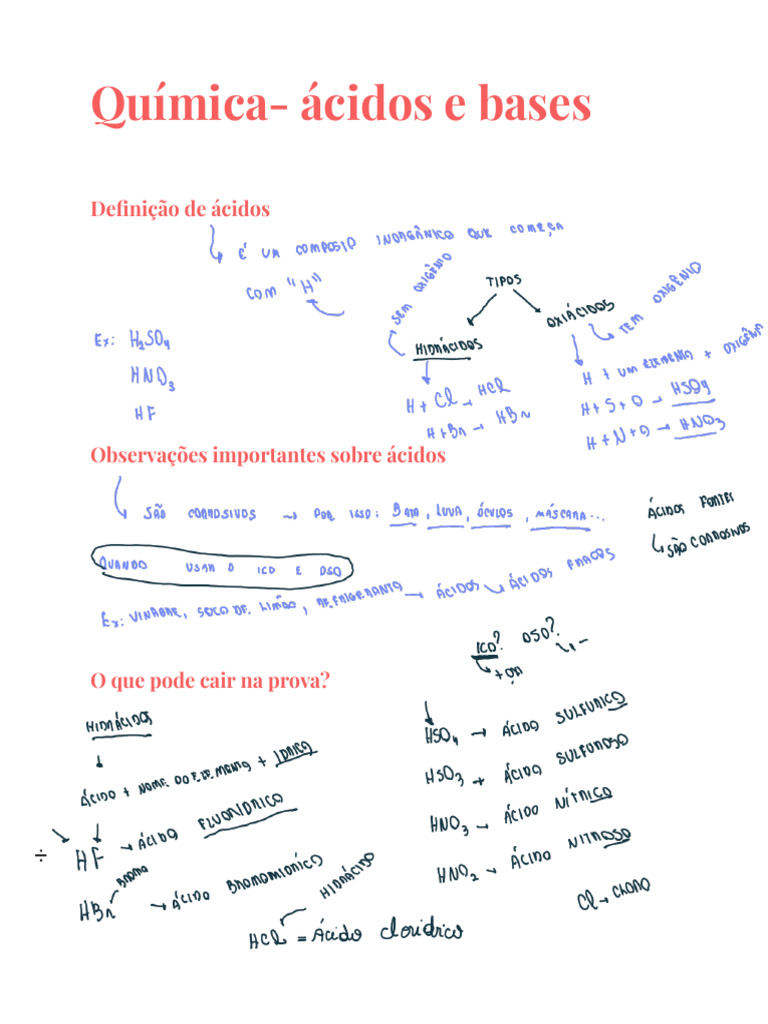 Química- ácidos e bases
Definição de ácidos
É UM COMPOSTO INORGÂNICO QUE COMEÇA
COM "H"
Ex: H₂SO₄
HNO₃
HF
TIPOS
SEM OXIGÊNIO
HIDRÁCIDOS
H + Cl → HCl
H + Br → HBr
OXIÁCIDOS
TEM OXIGÊNIO
H + UM ELEMENTO + OXIGÊNIO
H + S + O → HSO₄
H + N + O → HNO₃
Observações importantes sobre ácidos
SÃO CORROSIVOS → POR ISSO: BATA, LUVA, ÓCULOS, MÁSCARA...
ÁCIDOS FORTES
SÃO CORROSIVOS
QUANDO USAR O ICO E OSO
Ex: VINAGRE, SUCO DE LIMÃO, REFRIGERANTO → ÁCIDOS → ÁCIDOS FRACOS
ICO? OSO?
+ OX -
O que pode cair na prova?
HIDRÁCIDOS
ÁCIDO + NOME DO ELEMENTO + IDRICO
÷ HF → ÁCIDO FLUORÍDRICO
BROMO
HBr → ÁCIDO BROMOMIÓNICO
HIDRÁCIDO
HCl = Ácido cloridrico
HSO₄ → ÁCIDO SULFURICO
HSO₃ → ÁCIDO SULFUROSO
HNO₃ → ÁCIDO NÍTRICO
HNO₂ → ÁCIDO NITROSO
Cl → CLORO